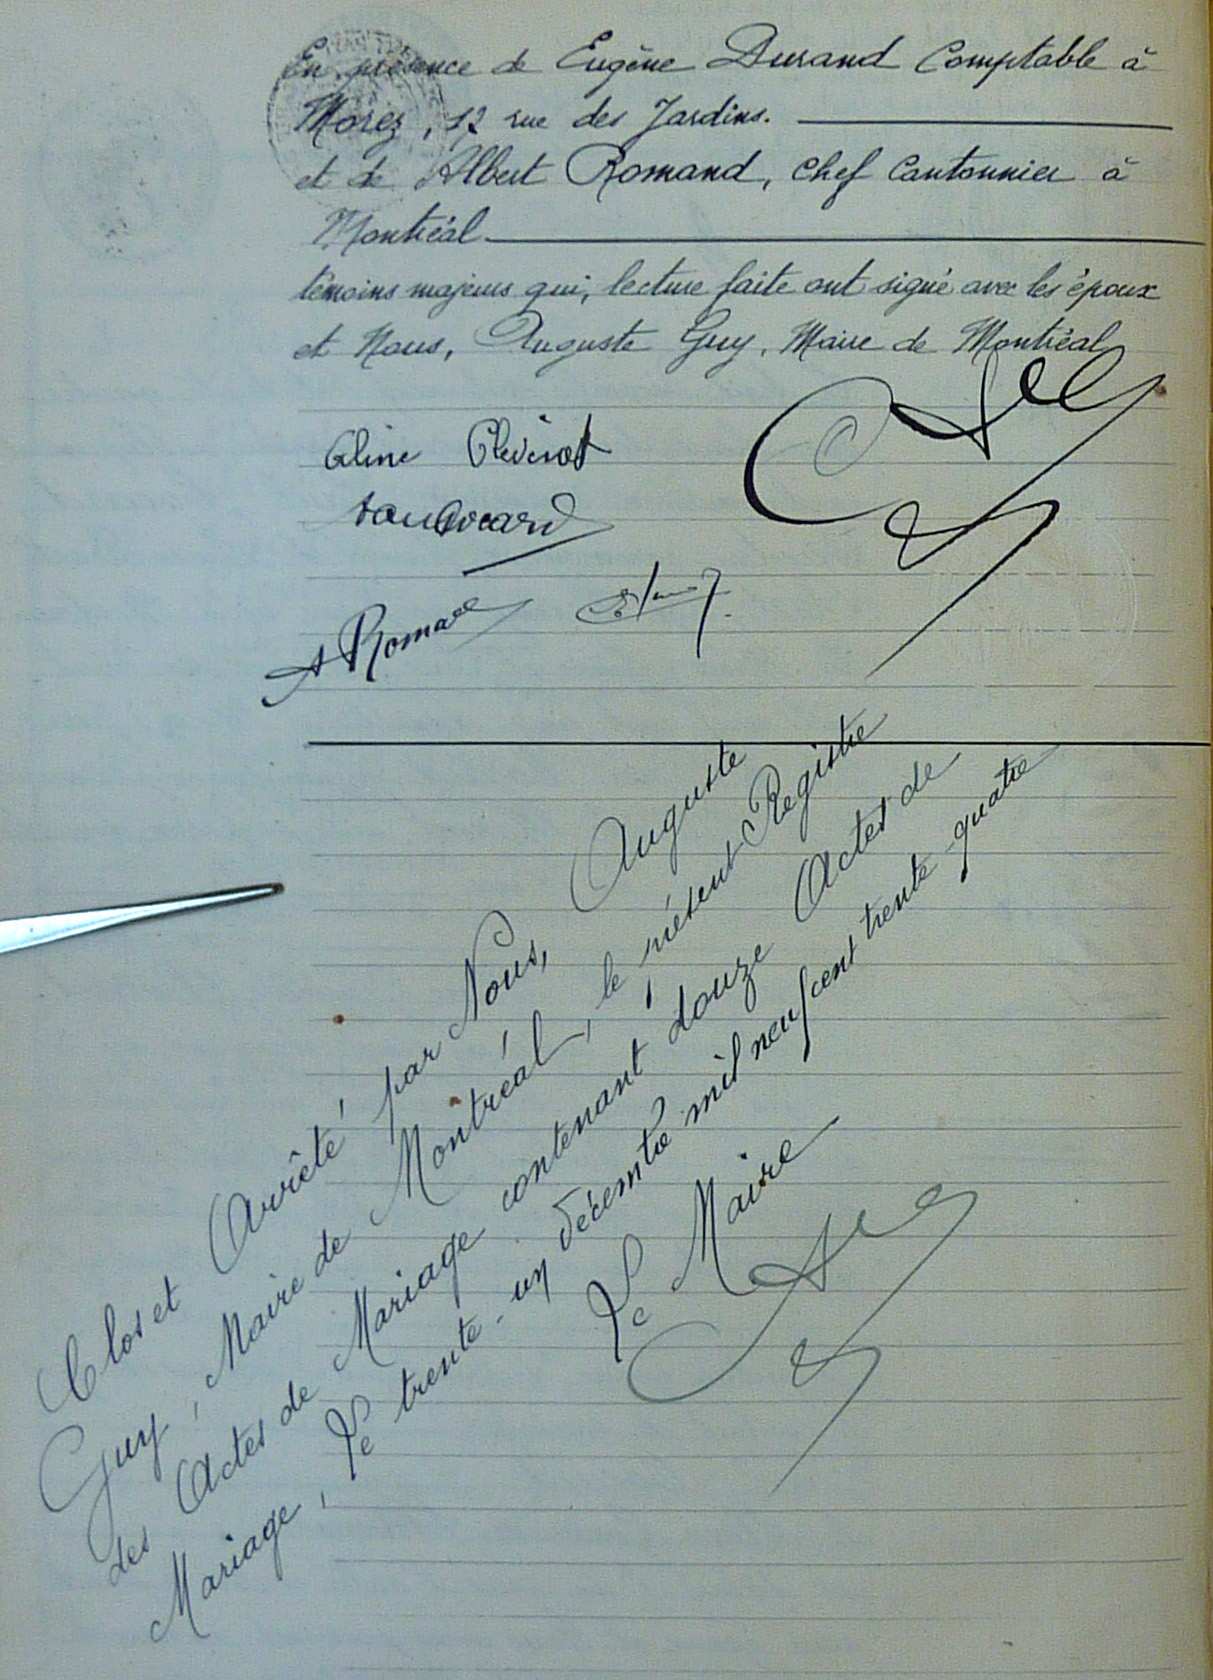 En présence de Eugène Durand Comptable à
Morez, 12 rue des Jardins.
et de Albert Romand, Chef Cantonnier à
Montréal
témoins majeurs qui, lecture faite ont signé avec les époux
et Nous, Auguste Guy, Maire de Montréal
Aline
A Romand
Clos et Arrêté par Nous, Auguste
Guy, Maire de Montréal, le présent Registre
des Actes de Mariage contenant douze Actes de
Mariage, Le trente-un décembre mil neuf cent trente-quatre
Le Maire